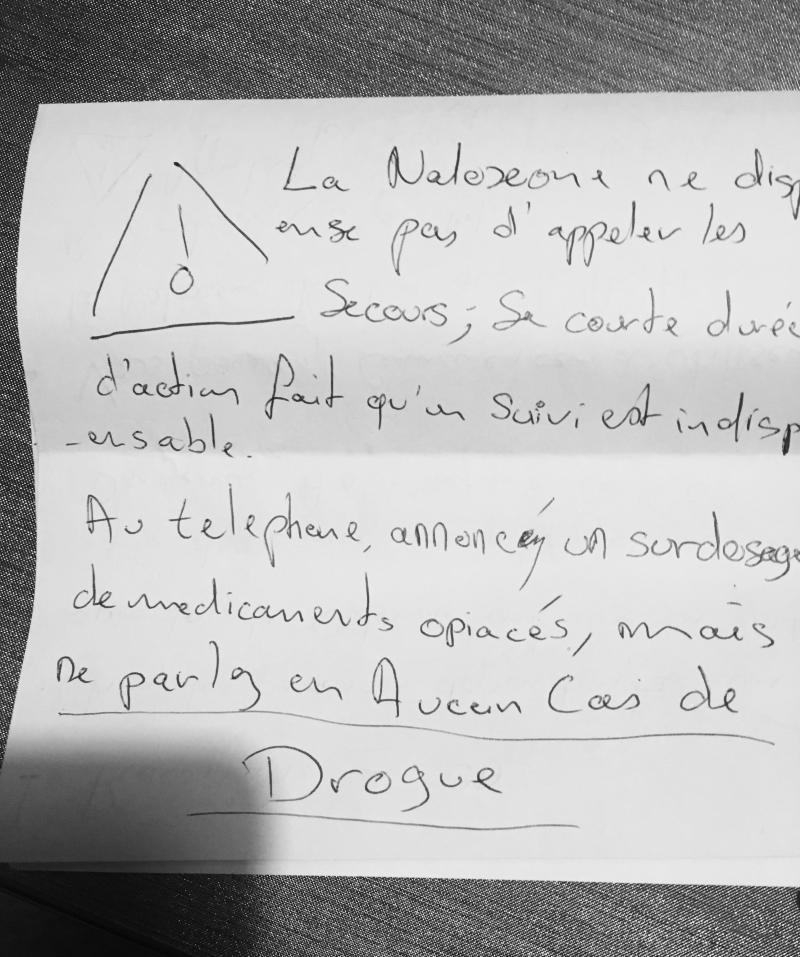 !
La Naloxone ne disp
ense pas d'appeler les
Secours; Sa courte durée
d'action fait qu'un Suivi est indisp
-ensable.
Au telephone, annoncéz un surdosage
de medicaments opiacés, mais
ne parlez en Aucun Cas de
Drogue